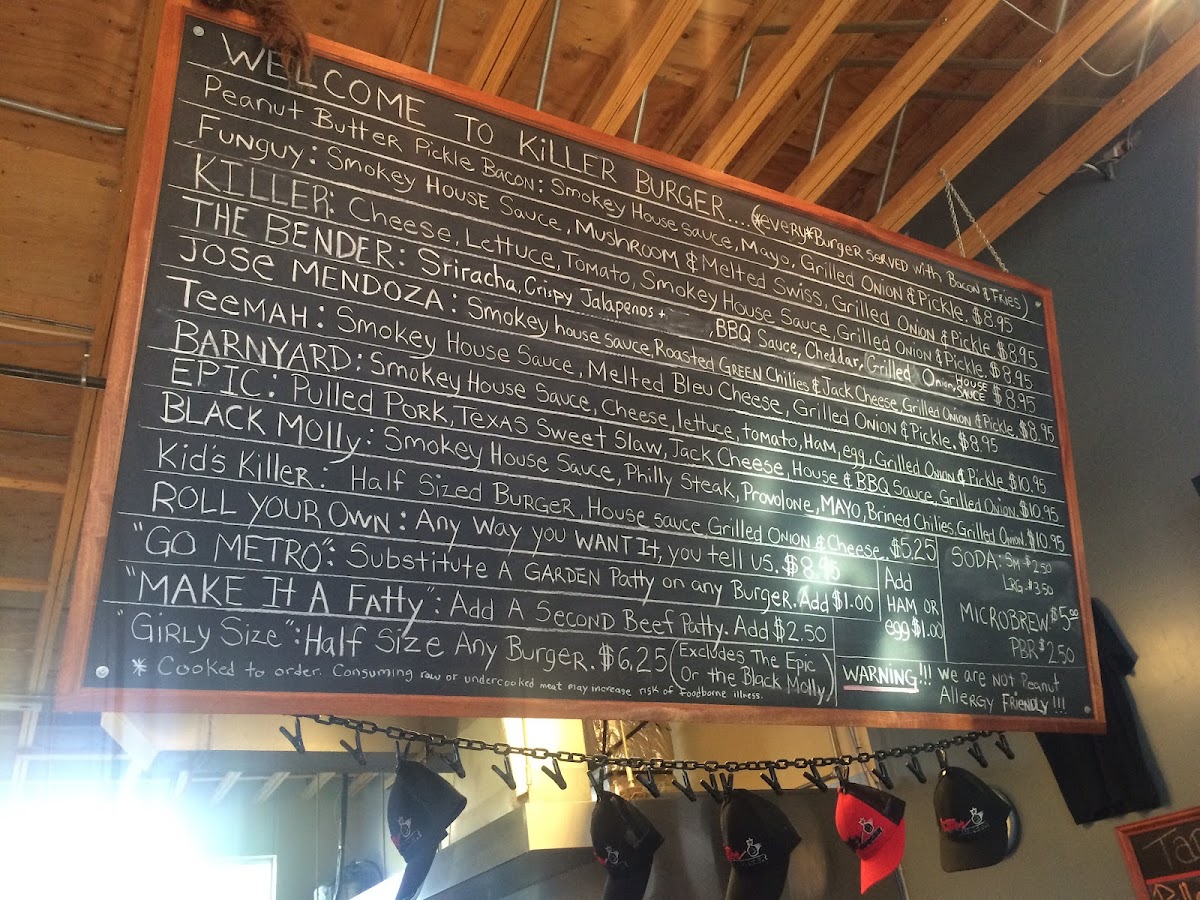 WELCOME TO KiLLER BURGER.... (*every* Burger served with Bacon & Fries)
Peanut Butter Pickle Bacon: Smokey House sauce, Mayo, Grilled Onion & Pickle. $8.95
Funguy: Smokey House Sauce, Mushroom & Melted Swiss, Grilled Onion & Pickle. $8.95
KILLER: Cheese, Lettuce, Tomato, Smokey House Sauce, Grilled Onion & Pickle. $8.95
THE BENDER: Sriracha, Crispy Jalapenos + , BBQ Sauce, Cheddar, Grilled Onion, HOUSE SAUCE $8.95
JOSE MENDOZA: Smokey house sauce, Roasted GREEN Chilies & Jack Cheese, Grilled Onion & Pickle. $8.95
TeeMAH: Smokey House Sauce, Melted Bleu Cheese, Grilled Onion & Pickle. $8.95
BARNYARD: Smokey House Sauce, Cheese, lettuce, tomato, Ham, egg, Grilled Onion & Pickle $10.95
EPIC: Pulled Pork, Texas Sweet Slaw, Jack Cheese, House & BBQ Sauce, Grilled Onion. $10.95
BLACK Molly: Smokey House Sauce, Philly Steak, Provolone, MAYO, Brined Chilies, Grilled Onion. $10.95
Kid's Killer: Half Sized Burger, House sauce Grilled Onion & Cheese.. $5.25
ROLL YOUR OWN: Any way you WANT It, you tell us. $8.95
"GO METRO": Substitute A GARDEN Patty on any Burger. Add $1.00
"MAKE It A Fatty": Add A Second Beef Patty. Add $2.50
"GIRLY SIZE": Half Size Any Burger. $6.25 (Excludes The Epic Or the Black Molly)
* Cooked to order. Consuming raw or undercooked meat may increase risk of foodborne illness.
Add
HAM OR
egg $1.00
SODA: SM $2.50
LRG. $3.50
MICROBREW $5.00
PBR $2.50
WARNING!!! We are not Peanut
Allergy Friendly!!!